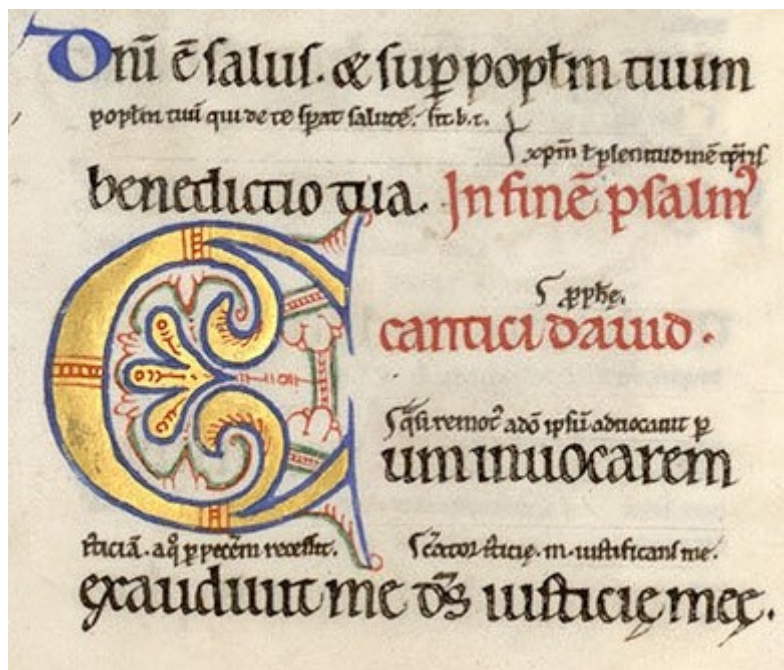 Dnī ē salus. & sup̄ poptm tuum
poptm tuū qui de te sp̄at salutē. st̄. b. t.
xp̄m ł plenitudinē
benedictio tua. In finē psalmꝰ
cantici dauid.
ꝙsi remotꝰ adō ip̄sū aduocauit p̄
Cum inuocarem
sticiā. a q̊ p̄ pecc̄m recessit.
sticię. iustificans me.
exaudiuit me ds̄ iusticię meę.